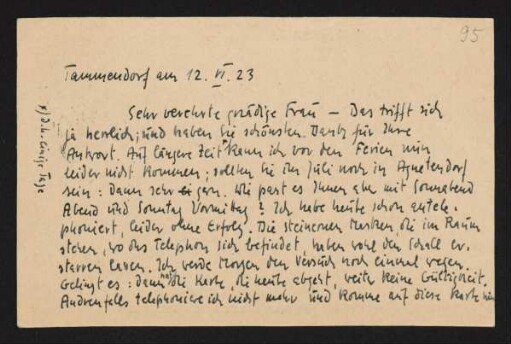 95
Tammendorf am 12. VI. 23
Sehr verehrte gnädige Frau – Das trifft sich
ja herrlich; und haben Sie schönsten Dank für Ihre
Antwort. Auf längere Zeit kann ich vor den Ferien nun
leider nicht kommen; sollten Sie im Juli noch in Agnetendorf
sein: Dann sehr gern. Wie past es Ihnen aber mit Sonnabend
Abend und Sonntag Vormittag? Ich habe heute schon antele-
phoniert, leider ohne Erfolg. Die steinernen Masken die im Raum
stehen, wo das Telephon sich befindet, haben wohl den Schall er-
starren lassen. Ich werde Morgen den Versuch noch einmal wagen.
Gelingt es: Dann hat die Karte, die heute abgeht, weiter keine Gültigkeit.
Andrenfalls telephoniere ich nicht mehr und komme auf diese Karte hin
x) d.h. einige Tage